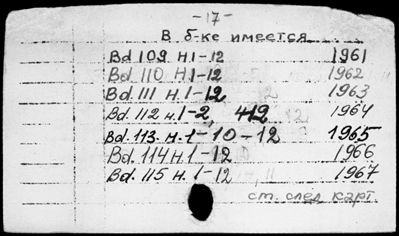 -17-
В б-ке имеется
Bd 109 H.1-12 1961
Bd 110 H.1-12 1962
Bd 111 H.1-12 1963
Bd. 112 H.1-2, 412 1964
Bd. 113. H.1-10-12 1965
Bd. 114 H.1-12 1966
Bd. 115 H.1-12 1967
ст. след карт.